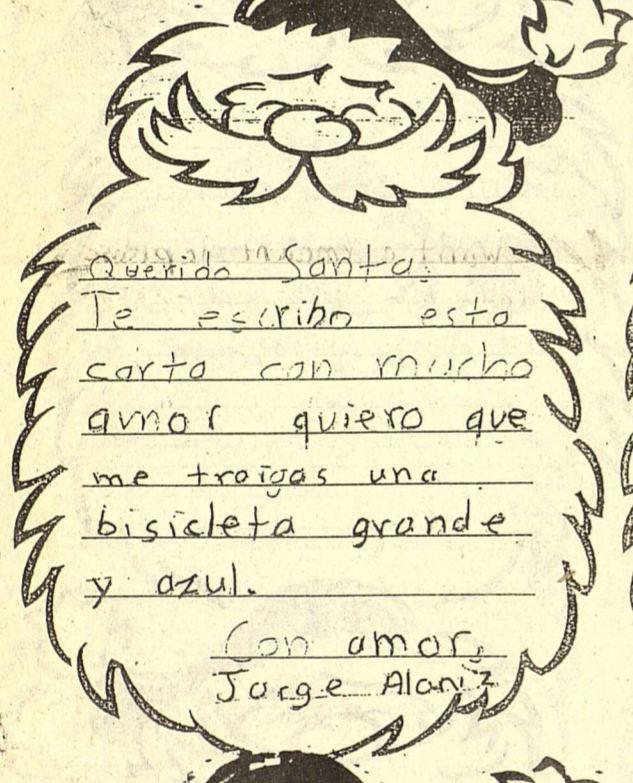 Querido Santa:
Te escribo esta
carta con mucho
amor quiero que
me traigas una
bisicleta grande
y azul.
Con amor,
Jorge Alaniz